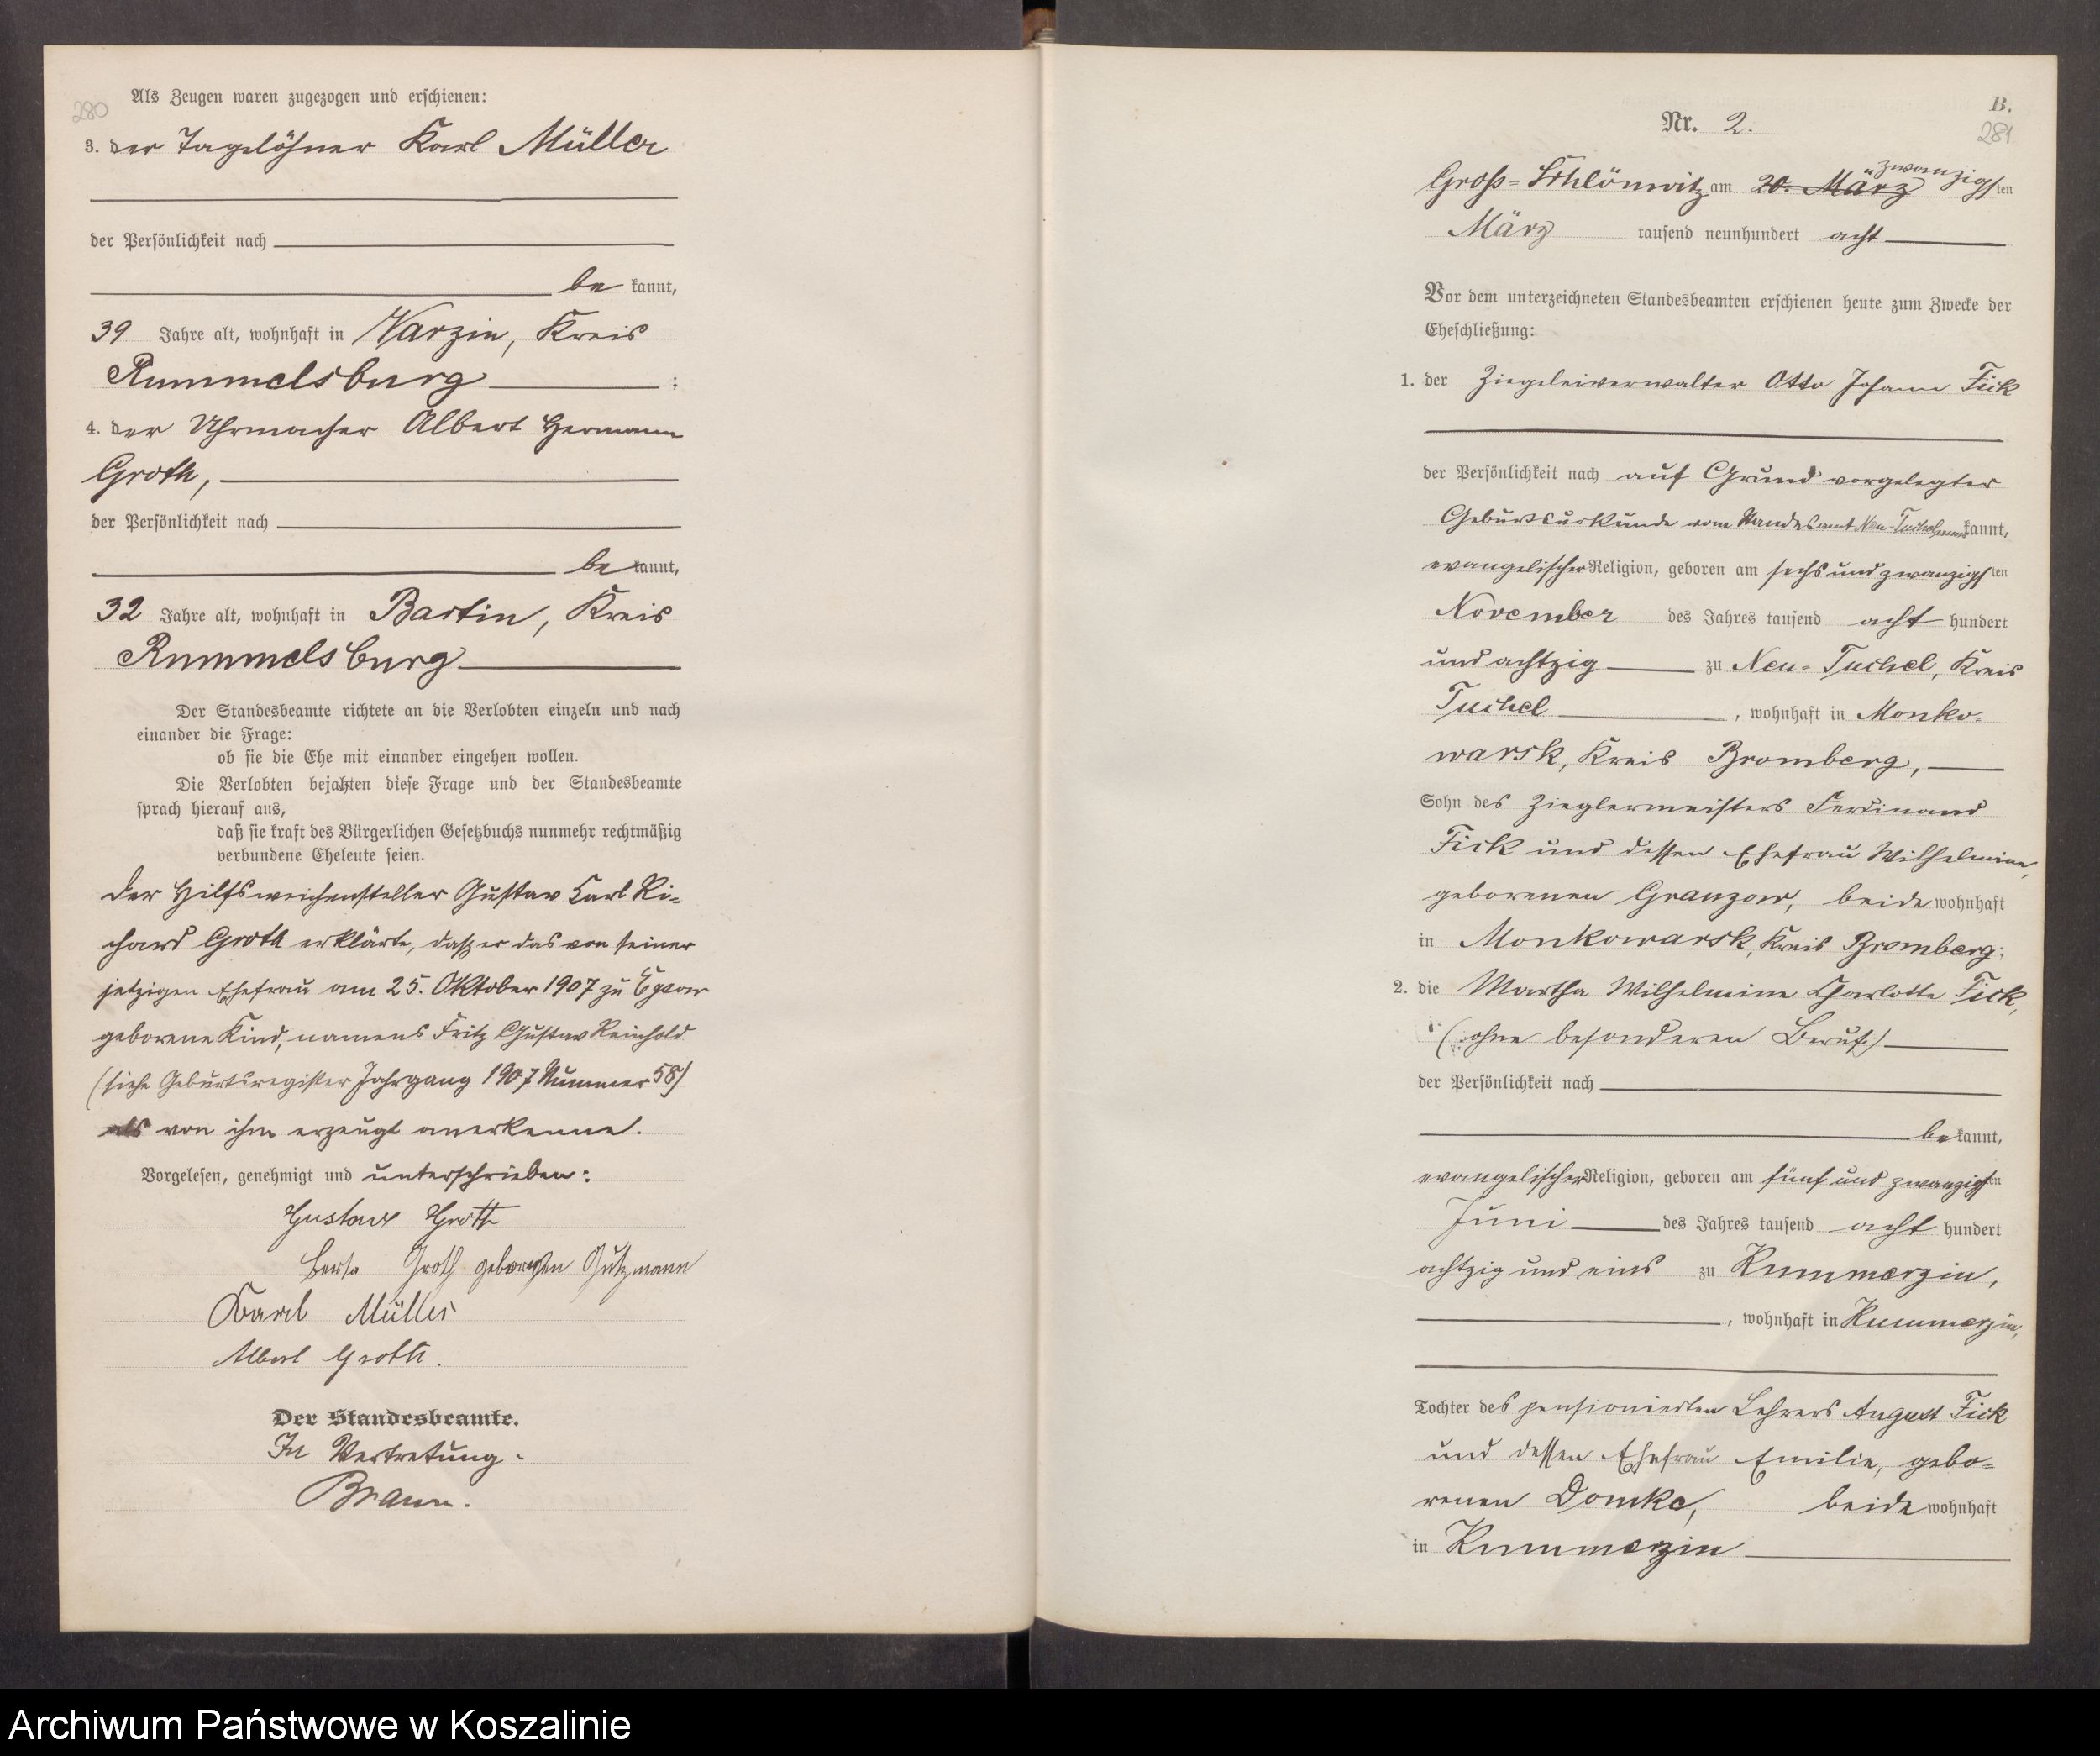 280
Als Zeugen waren zugezogen und erschienen:
3. der Tagelöhner Karl Müller
der Persönlichkeit nach
be kannt,
39 Jahre alt, wohnhaft in Varzin, Kreis
Rummelsburg ;
4. der Uhrmacher Albert Hermann
Groth,
der Persönlichkeit nach
be kannt,
32 Jahre alt, wohnhaft in Bartin, Kreis
Rummelsburg
Der Standesbeamte richtete an die Verlobten einzeln und nach
einander die Frage:
ob sie die Ehe mit einander eingehen wollen.
Die Verlobten bejahten diese Frage und der Standesbeamte
sprach hierauf aus,
daß sie kraft des Bürgerlichen Gesetzbuchs nunmehr rechtmäßig
verbundene Eheleute seien.
Der Hilfsweichensteller Gustav Carl Ri-
chard Groth erklärte, dass er das von seiner
jetzigen Ehefrau am 25. Oktober 1907 zu
geborene Kind, namens Fritz Gustav Reinhold
(siehe Geburtsregister Jahrgang 1907 Nummer 58)
als von ihm erzeugt anerkenne.
Vorgelesen, genehmigt und unterschrieben:
Gustav Groth
Berta Groth geborenen Gutzmann
Karl Müller
Albert Groth.
Der Standesbeamte.
In Vertretung.
Braun.
B.
281
Nr. 2.
Groß-Schlönwitz am 20. März zwanzigsten
März tausend neunhundert acht
Vor dem unterzeichneten Standesbeamten erschienen heute zum Zwecke der
Eheschließung:
1. der Ziegeleiverwalter Otto Johann Fick
der Persönlichkeit nach auf Grund vorgelegter
Geburtsurkunde vom Standesamt Neu-Tuchel kannt,
evangelischer Religion, geboren am sechsundzwanzigsten
November des Jahres tausend acht hundert
und achtzig zu Neu-Tuchel, Kreis
Tuchel, wohnhaft in Monko-
warsk, Kreis Bromberg,
Sohn des Zieglermeisters Ferdinand
Fick und dessen Ehefrau Wilhelmine,
geborenen Granzow, beide wohnhaft
in Monkowarsk, Kreis Bromberg;
2. die Martha Wilhelmine Charlotte Fick,
(ohne besonderen Beruf)
der Persönlichkeit nach
be kannt,
evangelischer Religion, geboren am fünf und zwanzigsten
Juni des Jahres tausend acht hundert
achtzig und eins zu Kummerzin,
, wohnhaft in Kummerzin,
Tochter des pensionierten Lehrers August Fick
und dessen Ehefrau Emilie, gebo-
renen Domke, beide wohnhaft
in Kummerzin
Archiwum Państwowe w Koszalinie